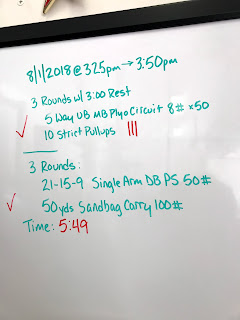 8/1/2018 @ 325pm → 3:50pm
3 Rounds w/ 3:00 Rest
5 Way UB MB Plyo Circuit 8# x50
10 Strict Pullups |||
3 Rounds:
21-15-9 Single Arm DB PS 50#
50yds Sandbag Carry 100#
Time: 5:49